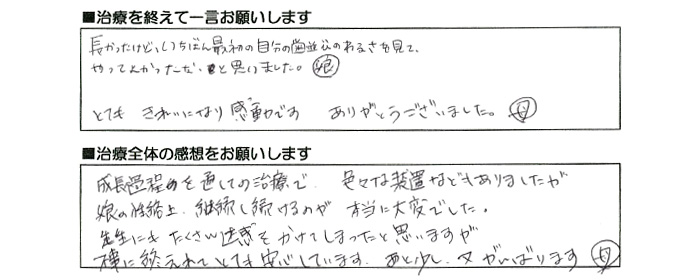 ■治療を終えて一言お願いします
長かったけど、いちばん最初の自分の歯並びのわるさを見て、
やってよかったな、と思いました。 娘
とても きれいになり 感動です ありがとうございました。 母
■治療全体の感想をお願いします
成長過程を通しての治療で、色々な装置などもありましたが
娘の性格上、継続し続けるのが 本当に大変でした。
先生にも たくさん迷惑を かけてしまったと 思いますが
に終えれて とても 安心しています。あと少し、又 がんばります 母